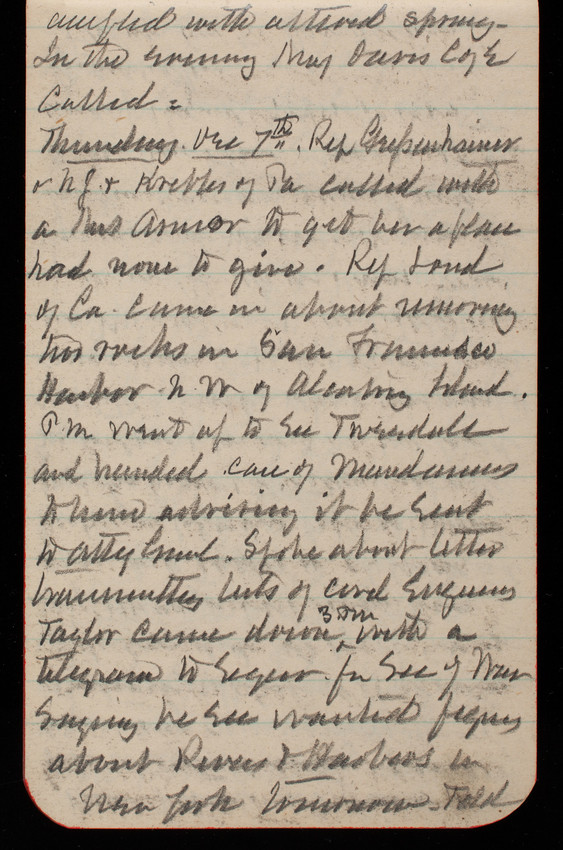 with altered spring -
In the evening Maj Davis C of E
Called =
Thursday. Dec 7th. Rep
& N.J. & Krebbs of Pa called with
a Mrs Armor to get her a place
had none to give. Rep Loud
of Ca came in about removing
two rocks in San Francisco
Harbor N W of Alcatraz Island.
P m went up to See Tweedale
and handed case of Mandamus
to him advising it be Sent
to Atty Genl. Spoke about letter
transmitting lists of civil Engineers
Taylor came down 3 P.M. with a
telegram to fr Sec of War
Saying he Sec wanted figures
about Rivers & Harbors in
New York tomorrow. Told